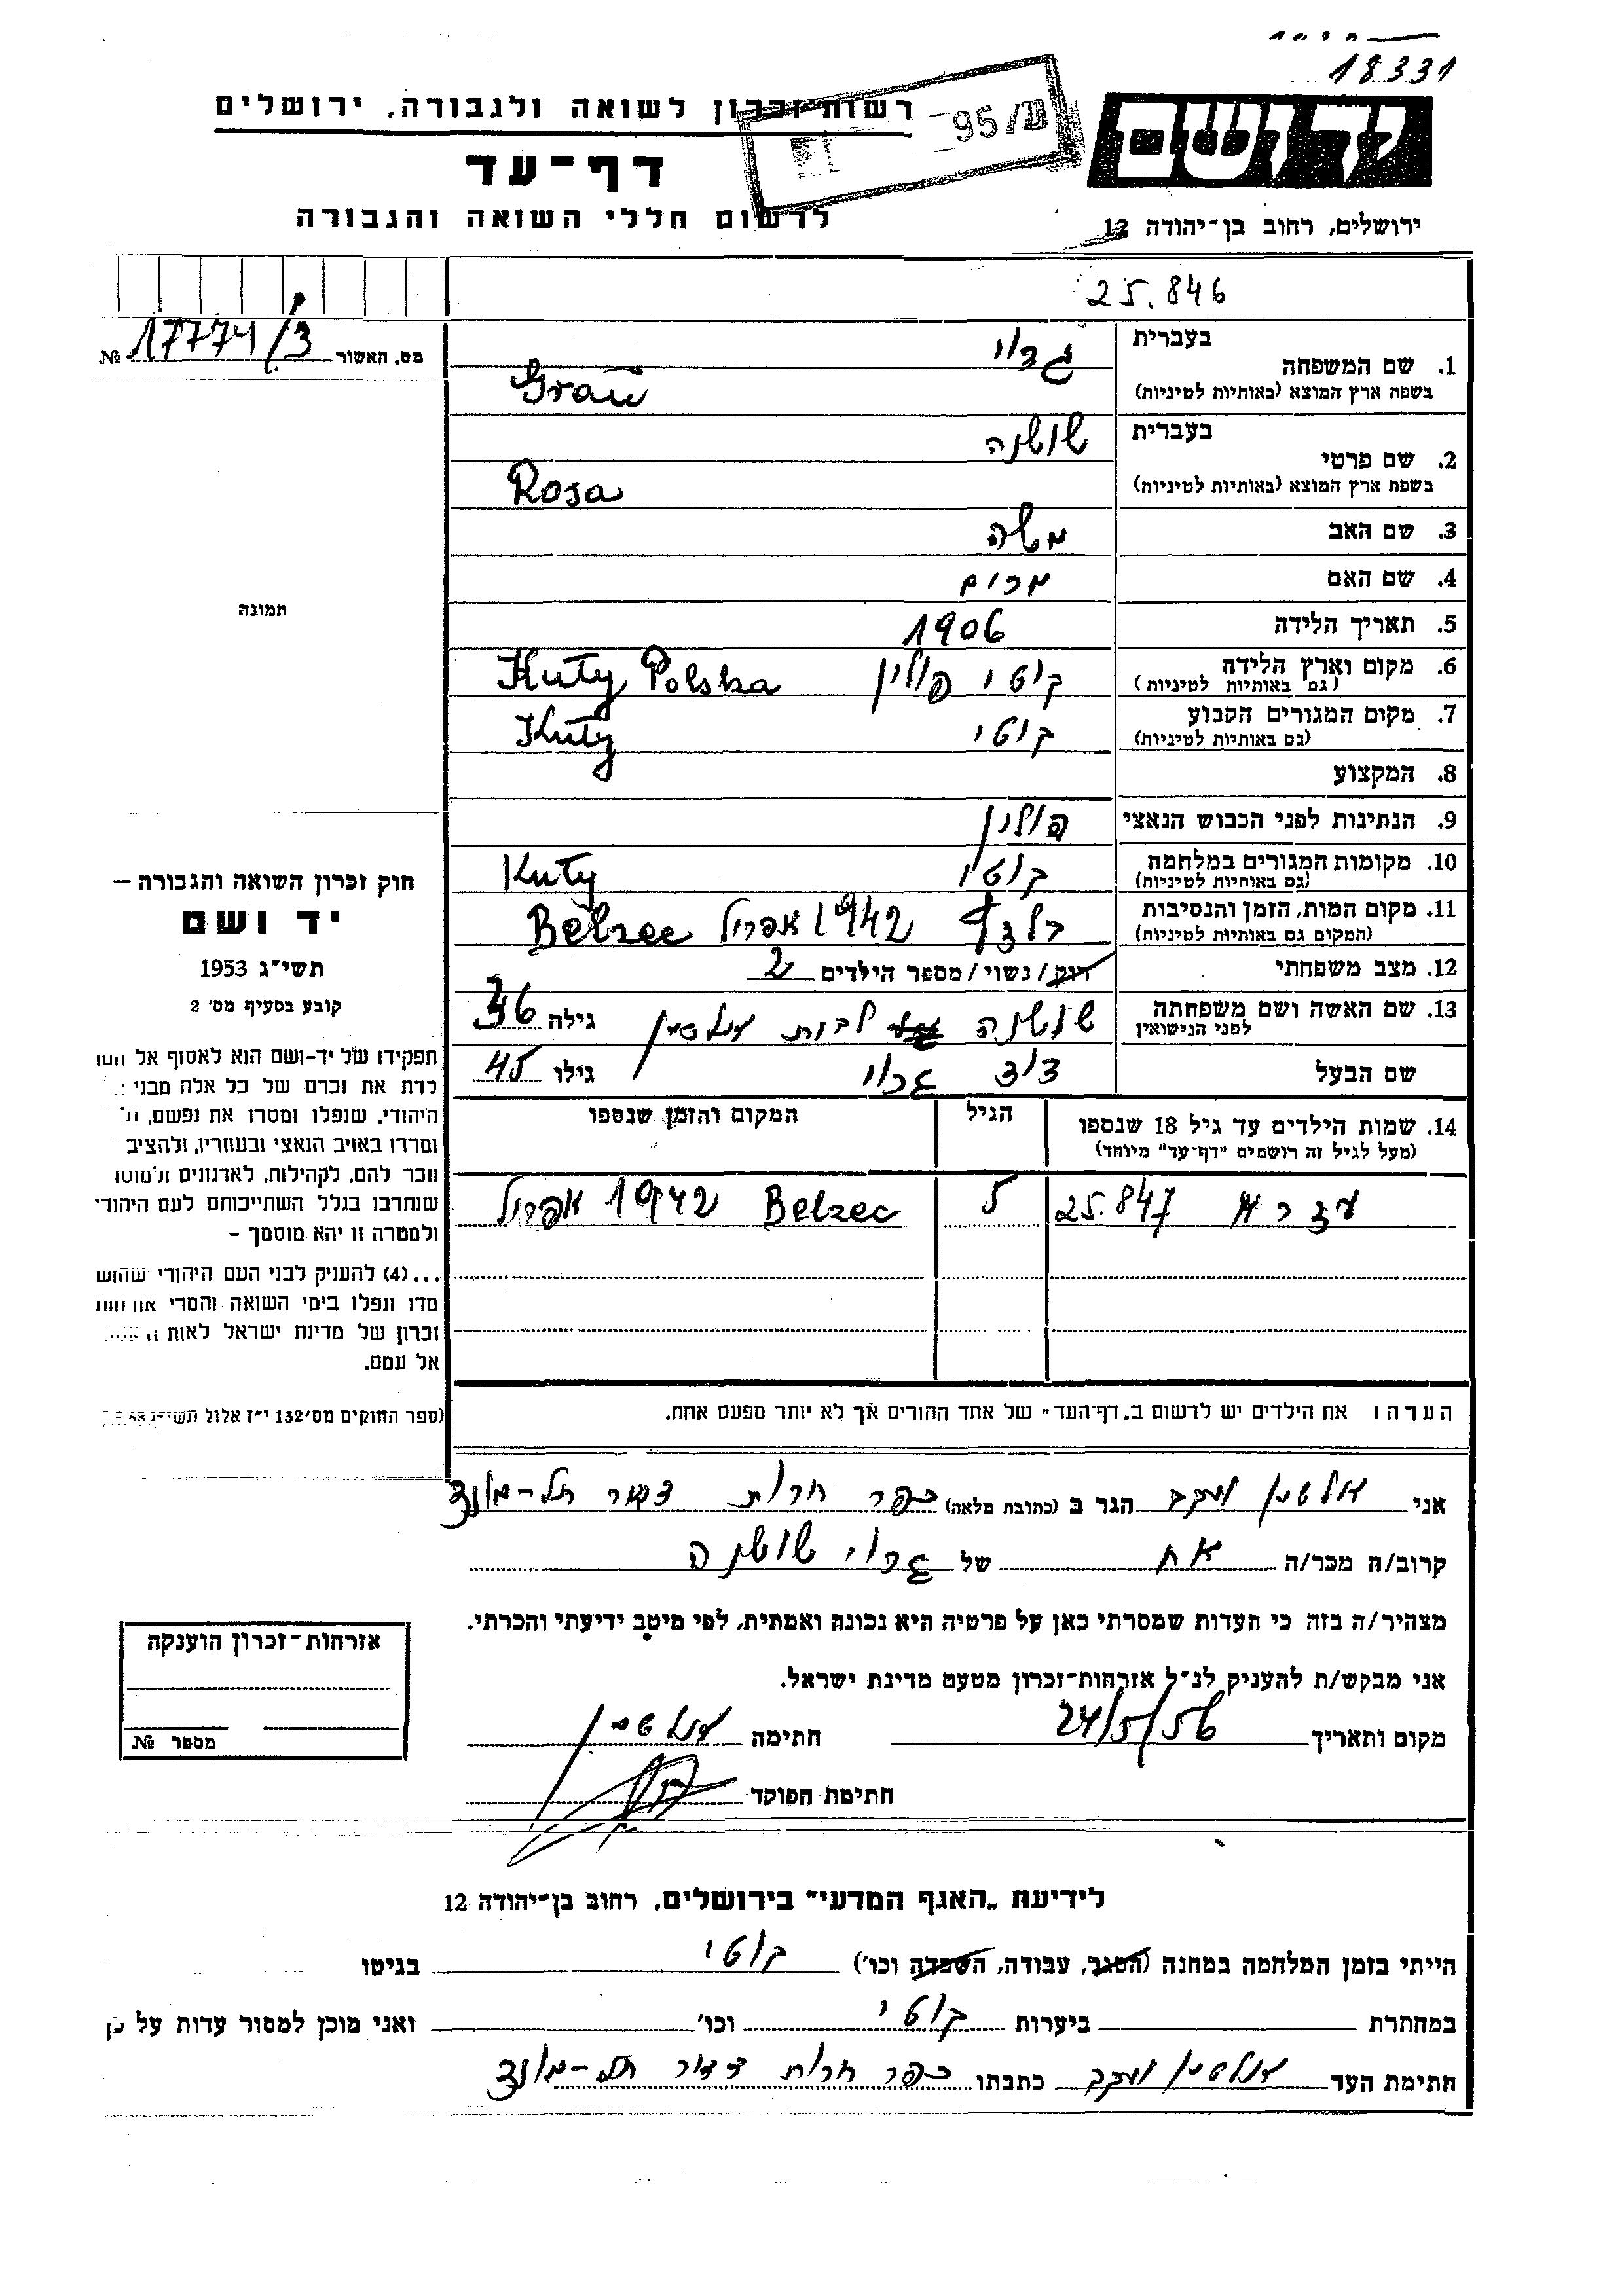 18331
רשות־זכרון לשואה ולגבורה, ירושלים
95/
יד ושם
דף־עד
לרשום חללי השואה והגבורה
ירושלים, רחוב בן־יהודה 12
25.846
מס. האשור 17774/3 №
1. שם המשפחה
בעברית גראו
בשפת ארץ המוצא (באותיות לטיניות) Grau
2. שם פרטי
בעברית שושנה
בשפת ארץ המוצא (באותיות לטיניות) Rosa
3. שם האב משה
4. שם האם מרים
תמונה
5. תאריך הלידה 1906
6. מקום וארץ הלידה קוטי פולין Kuty Polska
(גם באותיות לטיניות)
7. מקום המגורים הקבוע קוטי Kuty
(גם באותיות לטיניות)
8. המקצוע
9. הנתינות לפני הכבוש הנאצי פולין
10. מקומות המגורים במלחמה קוטי Kuty
(גם באותיות לטיניות)
11. מקום המות, הזמן והנסיבות בלזץ 1942 אפריל Belzec
(המקום גם באותיות לטיניות)
12. מצב משפחתי רווק/נשוי/מספר הילדים 2
13. שם האשה ושם משפחתה שושנה לבית גילה 36
לפני הנישואין
שם הבעל דוד גראו גילו 45
14. שמות הילדים עד גיל 18 שנספו
(מעל לגיל זה רושמים "דף־עד" מיוחד)
הגיל
המקום והזמן שנספו
עזרא 25.847 5 Belzec 1942 אפריל
חוק זכרון השואה והגבורה –
יד ושם
תשי"ג 1953
קובע בסעיף מס' 2
תפקידו של יד-ושם הוא לאסוף אל
לדת את זכרם של כל אלה מבני
היהודי, שנפלו ומסרו את נפשם,
ומרדו באויב הנאצי ובעוזריו, ולהציב
זכר להם, לקהילות, לארגונים
שנחרבו בגלל השתייכותם לעם היהודי
ולמטרה זו יהא מוסמך –
...(4) להעניק לבני העם היהודי
מדו ונפלו בימי השואה והמרי
זכרון של מדינת ישראל לאות
אל עמם.
(ספר החוקים מס' 132 י"ז אלול
הערה: את הילדים יש לרשום ב"דף־העד" של אחד ההורים אך לא יותר מפעם אחת.
אני יעקב הגר ב (כתובת מלאה) כפר חרות דואר תל-מונד
קרוב/ה מכר/ה אח של גראו שושנה
מצהיר/ה בזה כי העדות שמסרתי כאן על פרטיה היא נכונה ואמתית, לפי מיטב ידיעתי והכרתי.
אני מבקש/ת להעניק לנ"ל אזרחות־זכרון מטעם מדינת ישראל.
מקום ותאריך 24/5/56 חתימה
חתימת הפוקד
אזרחות־זכרון הוענקה
מספר №
לידיעת "האגף המדעי" בירושלים, רחוב בן־יהודה 12
הייתי בזמן המלחמה במחנה (הסגר, עבודה, השמדה וכו') קוטי בגיטו
במחתרת ביערות קוטי וכו' ואני מוכן למסור עדות על כן
חתימת העד יעקב כתבתו כפר חרות דואר תל-מונד